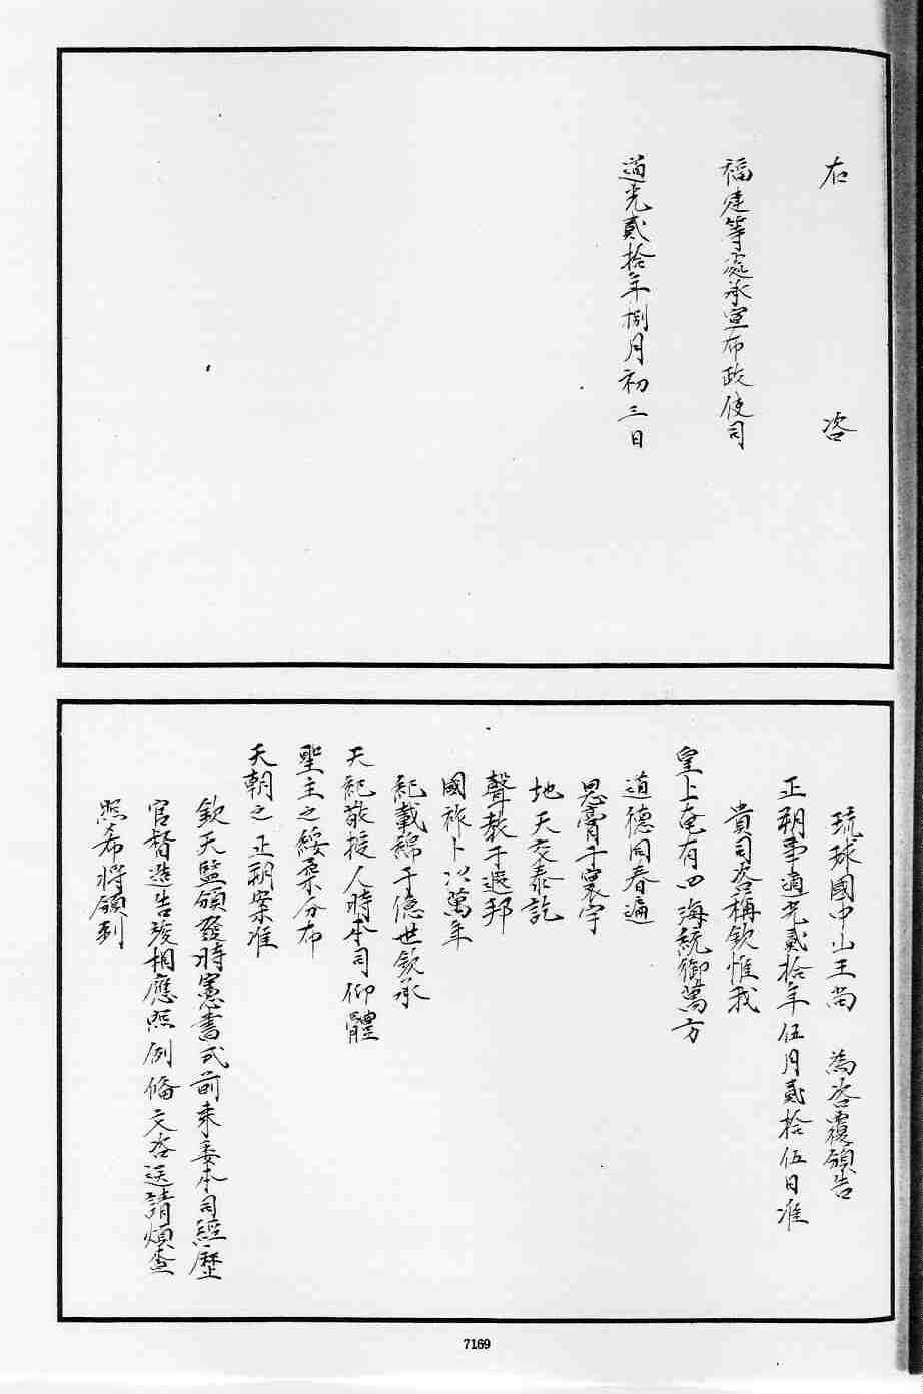 右　咨
福建等處承宣布政使司
道光貳拾年捌月初三日
琉球國中山王尚　為咨覆領告
正朔事道光貳拾年伍月貳拾伍日准
貴司咨稱欽惟我
皇上奄有四海統御萬方
道德同春遍
恩膏于寰宇
地天交泰訖
聲教于遐邦
國祚卜以萬年
紀載綿于億世欽承
天紀敬授人時本司仰體
聖主之綏柔分布
天朝之正朔案准
欽天監頒發時憲書式前來委本司經歷
官督造告竣相應照例備文咨送請煩查
照希將領到
7169